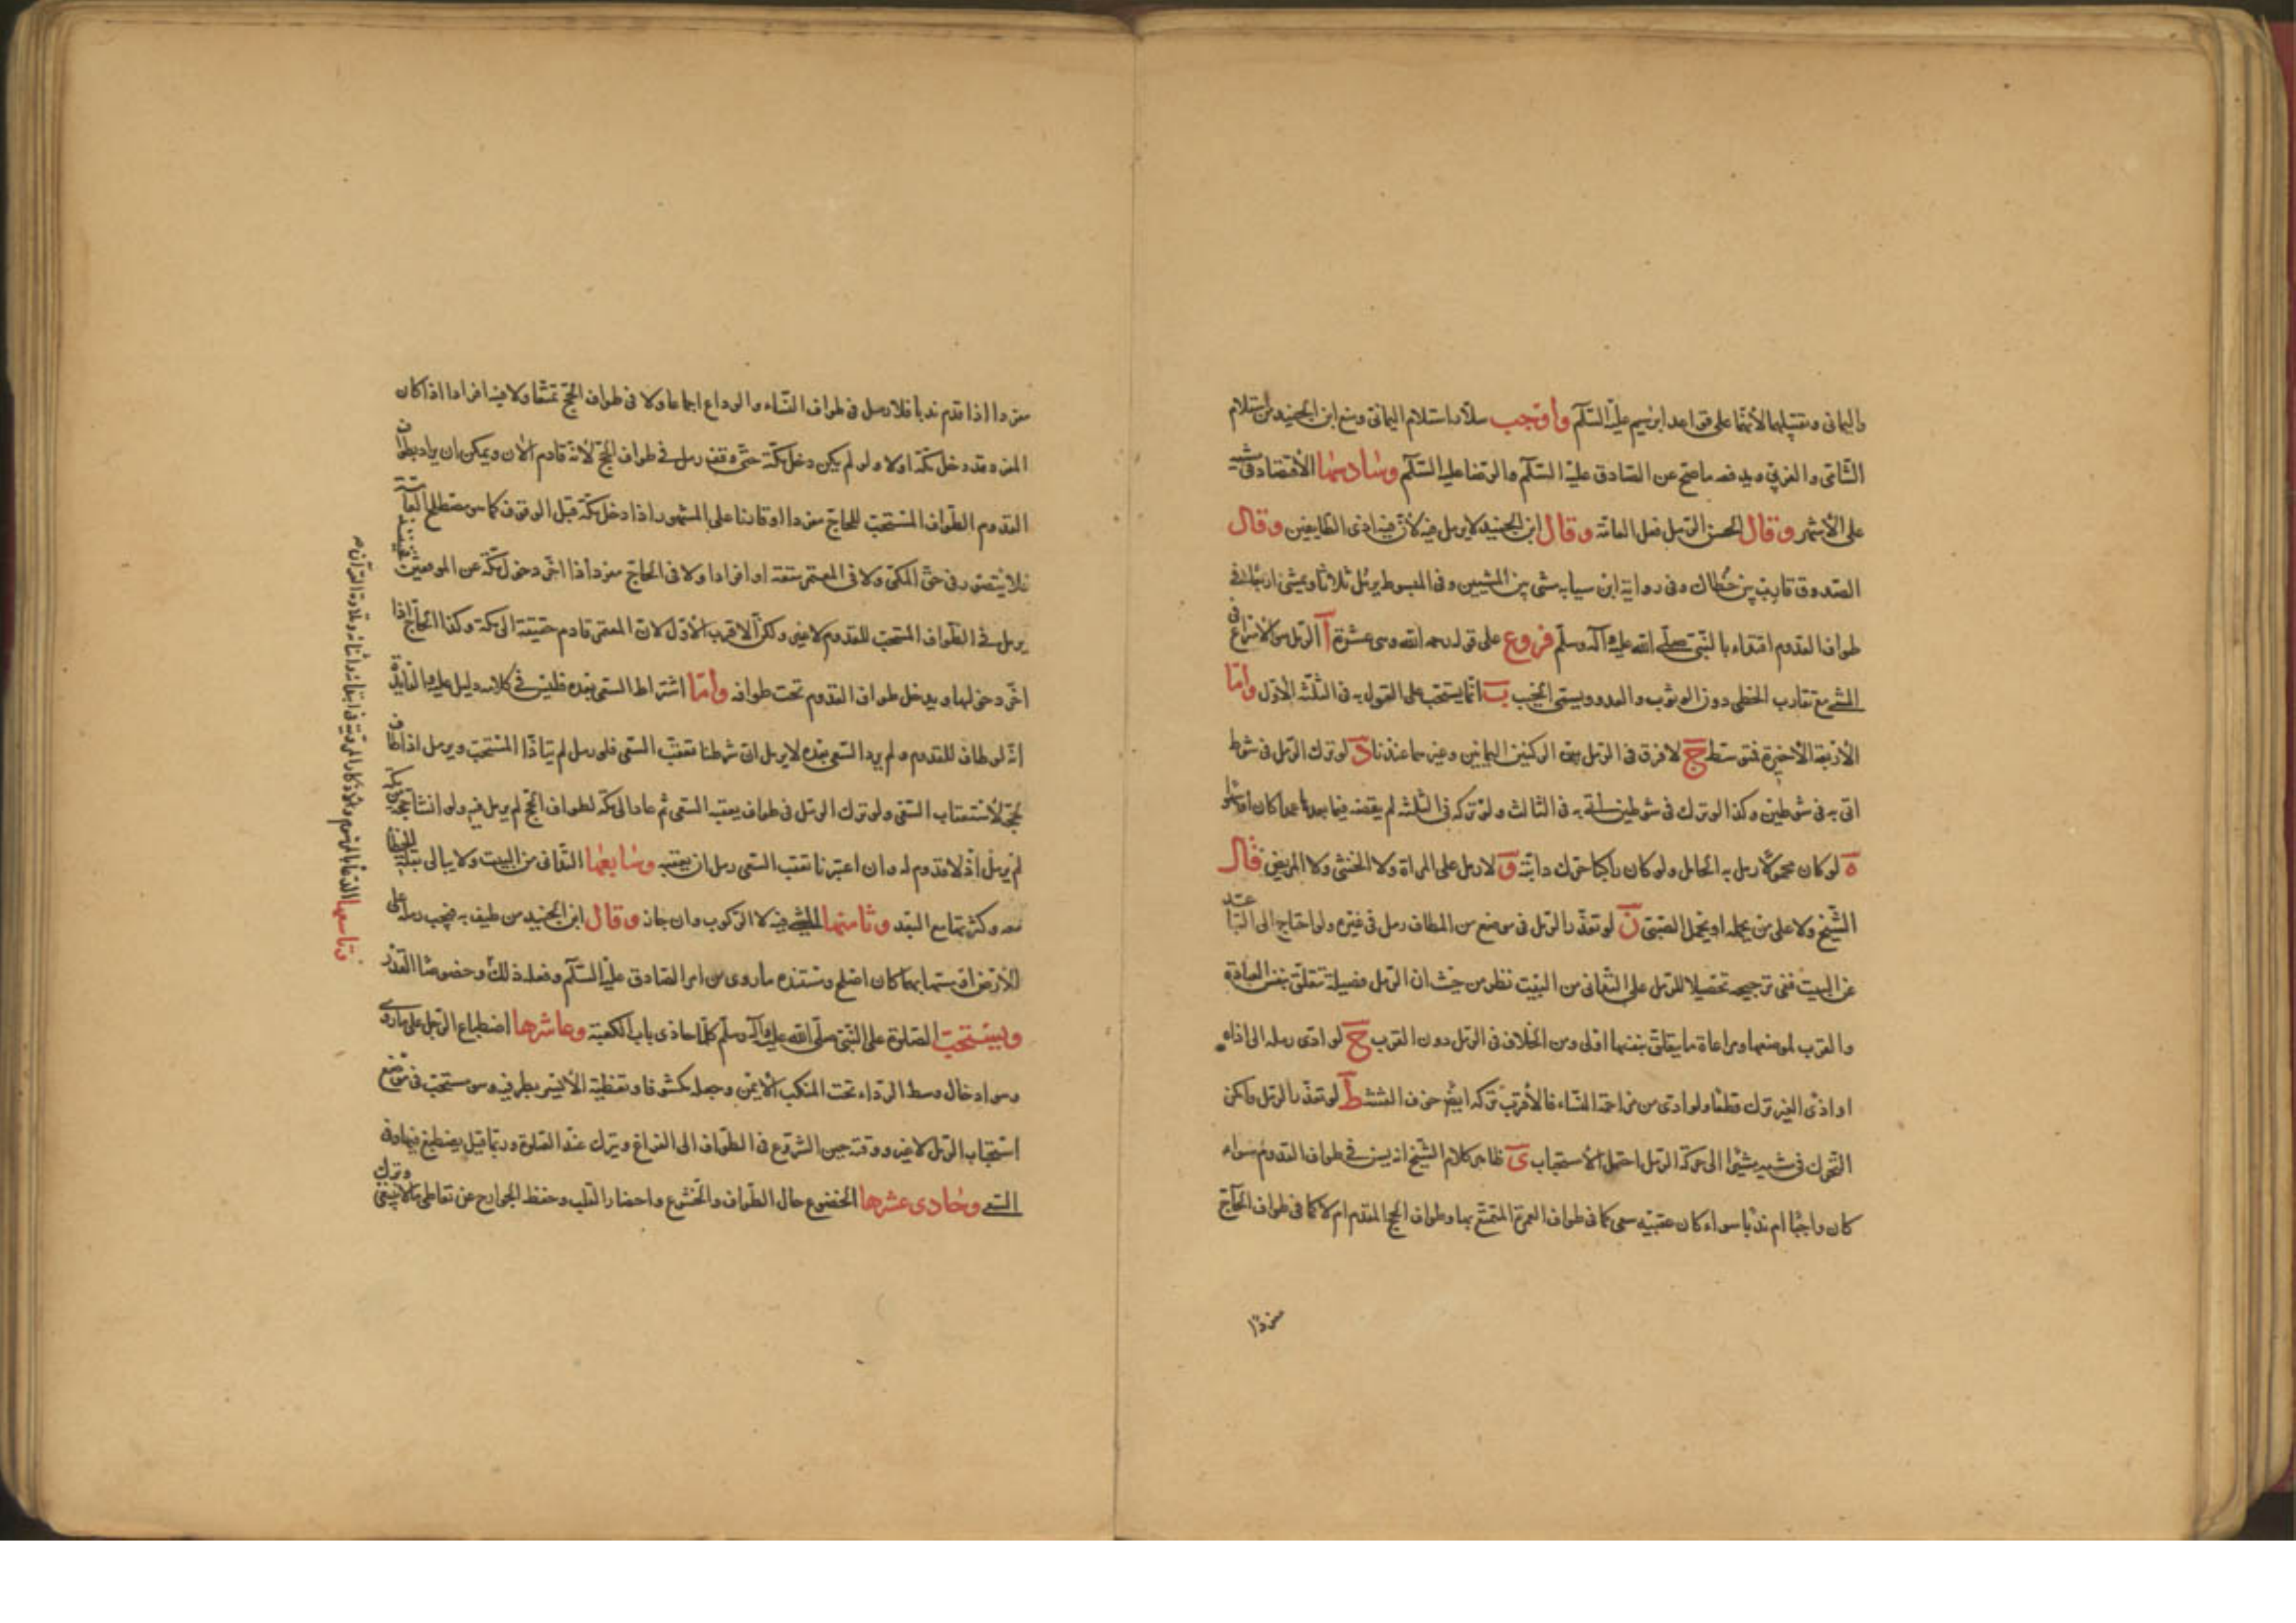 واليماني وتقبيلهما لأنهما على قواعد ابرهيم عليه السّلم واوجب سلار استلام اليماني ومنع ابن الجنيد من استلام
الشّامي والغربي ويدفعه ما صحّ عن الصّادق عليه السّلم والرّضا عليه السّلم وسادسها الأقتصاد في مشيه
على الأشهر وقال الحسن الرّمل فعل العامّة وقال ابن الجنيد لا يرمل فيه لأنّ فيه اذى الطّايفين وقال
الصّدوق قارب بين خطاك وفي رواية ابن سيابة مشى بين المشيين وفي المبسوط يرمل ثلاثا ويمشي اربعًا في
طواف القدوم اقتداء بالنّبي صلّى الله عليه وآله وسلّم فروع على قوله رحمه الله وهي عشرة آ الرّمل هو الاسراع في
المشي مع تقارب الخطى دون الوثوب والعدو ويسمّى الخبب ب انّما يستحب على القول به في الثلثة الأول وامّا
الأربعة الأخيرة فتوسّط ج لا فرق في الرّمل بين الركنين اليمانيين وغيرهما عندنا د لو ترك الرّمل في شوط
اتى به في شوطين وكذا لو ترك في شوطين اتى به في الثالث ولو تركه في الثلثة لم يقضه فيما بعد عامدا كان او ناسيا
ه لو كان محمولا رمل به الحامل ولو كان راكبًا حرّك دابّته و لا رمل على المراة ولا الخنثى ولا المريض قال
الشّيخ ولا على من يحمله او يحمل الصّبيّ ز لو تعذّر الرّمل في موضع من المطاف رمل في غيره ولو احتاج الى التباعد
عن البيت ففي ترجيحه تحصيلا للرّمل على التّداني من البيت نظر من حيث ان الرّمل فضيلة تتعلّق بنفس العبادة
والقرب لموضعها ومراعاة ما يتعلّق بنفسها اولى ومن الخلاف في الرّمل دون القرب ح لو ادّى رمله الى اذاه
او اذى الغير ترك قطعًا ولو ادّى من مزاحمة النّساء فالأقرب تركه ايضًا خوف ط لو تعذّر الرّمل وامكن
التّحرك في مشيه مشبهًا الى حركة الرّمل احتمل الأستحباب ي ظاهر كلام الشّيخ انه يسنّ في طواف القدوم سواء
كان واجبًا ام ندبًا سواء كان عقيبه سعي كما في طواف العمرة المتمتع بها وطواف الحج المقدم ام لا كما في طواف الحاجّ
مفردًا
مفردا اذا قدم ندبا فلا رمل في طواف النّساء والوداع اجماعا ولا في طواف الحجّ تمتّعًا ولا فيه افرادا اذا كان
المفرد قد دخل مكّة اولا ولو لم يكن دخل مكّة حتّى وقف رمل في طواف الحجّ لأنه قادم الآن ويمكن ان يراد بطواف
القدوم الطّواف المستحبّ للحاجّ مفردا او قارنا على المشهور اذا دخل مكّة قبل الوقوف كما هو مصطلح العامّة فحينئذ
فلا يتصوّر في حقّ المكّي ولا في المعتمر متعة او افرادا ولا في الحاجّ مفردا اذا اخّر دخول مكّة عن الموقفين
يرمل في الطّواف المستحبّ للقدوم لا غير ولكنّ الاقرب الأوّل لان المعتمر قادم حقيقة الى مكّة وكذا الحاجّ اذا
اخّر دخولها ويدخل طواف القدوم تحت طوافه وامّا اشتراط السّعي بعده فليس في كلامه دليل عليه والفايدة
انّه لو طاف للقدوم ولم يرد السّعي بعده لا يرمل ان شرطنا تعقّب السّعي فلو رمل لم يتأدّ المستحبّ ويرمل اذا طاف
لحجّه لاستعقاب السّعي ولو ترك الرّمل في طواف يعقبه السّعي ثمّ عاد الى مكّة لطواف الحجّ لم يرمل فيه ولو انشأ حجّة
لم يرمل اذ لا قدوم له وان اعتبرنا تعقّب السّعي رمل ان يعقبه وسابعها التّداني من البيت ولا يبالي بقلّة الخطا
معه وكثرتها مع البعد وثامنها المشي فيه لا الرّكوب وان جاز وقال ابن الجنيد من طيف به فيجب رجله على
الأرض او مسّها بهما كان اصلح وسنذكره ما روى من امر الصّادق عليه السّلم وفعله ذلك وخصوصًا العذر
ويستحبّ الصّلوة على النّبيّ صلّى الله عليه وآله وسلّم كلّما حاذى باب الكعبة وعاشرها اضطباع الرّجل على ما روي
وهو ادخال وسط الرّداء تحت المنكب الأيمن وجعله مكشوفا وتغطية الأيسر بطرفيه وهو مستحبّ في موضع
استحباب الرّمل لا غير ووقته حين الشّروع في الطّواف الى الفراغ ويترك عند الصّلوة وربما قيل يضطبع فيها وفي
السّعي وحادى عشرها الخضوع حال الطّواف والخشوع واحضار القلب وحفظ الجوارح عن تعاطي ما لا ينبغي وترك
وتاسعها الدّعاء بالمرسوم والاذكار المرويّة في ابتدائه واثنائه وتلاوة القرآن